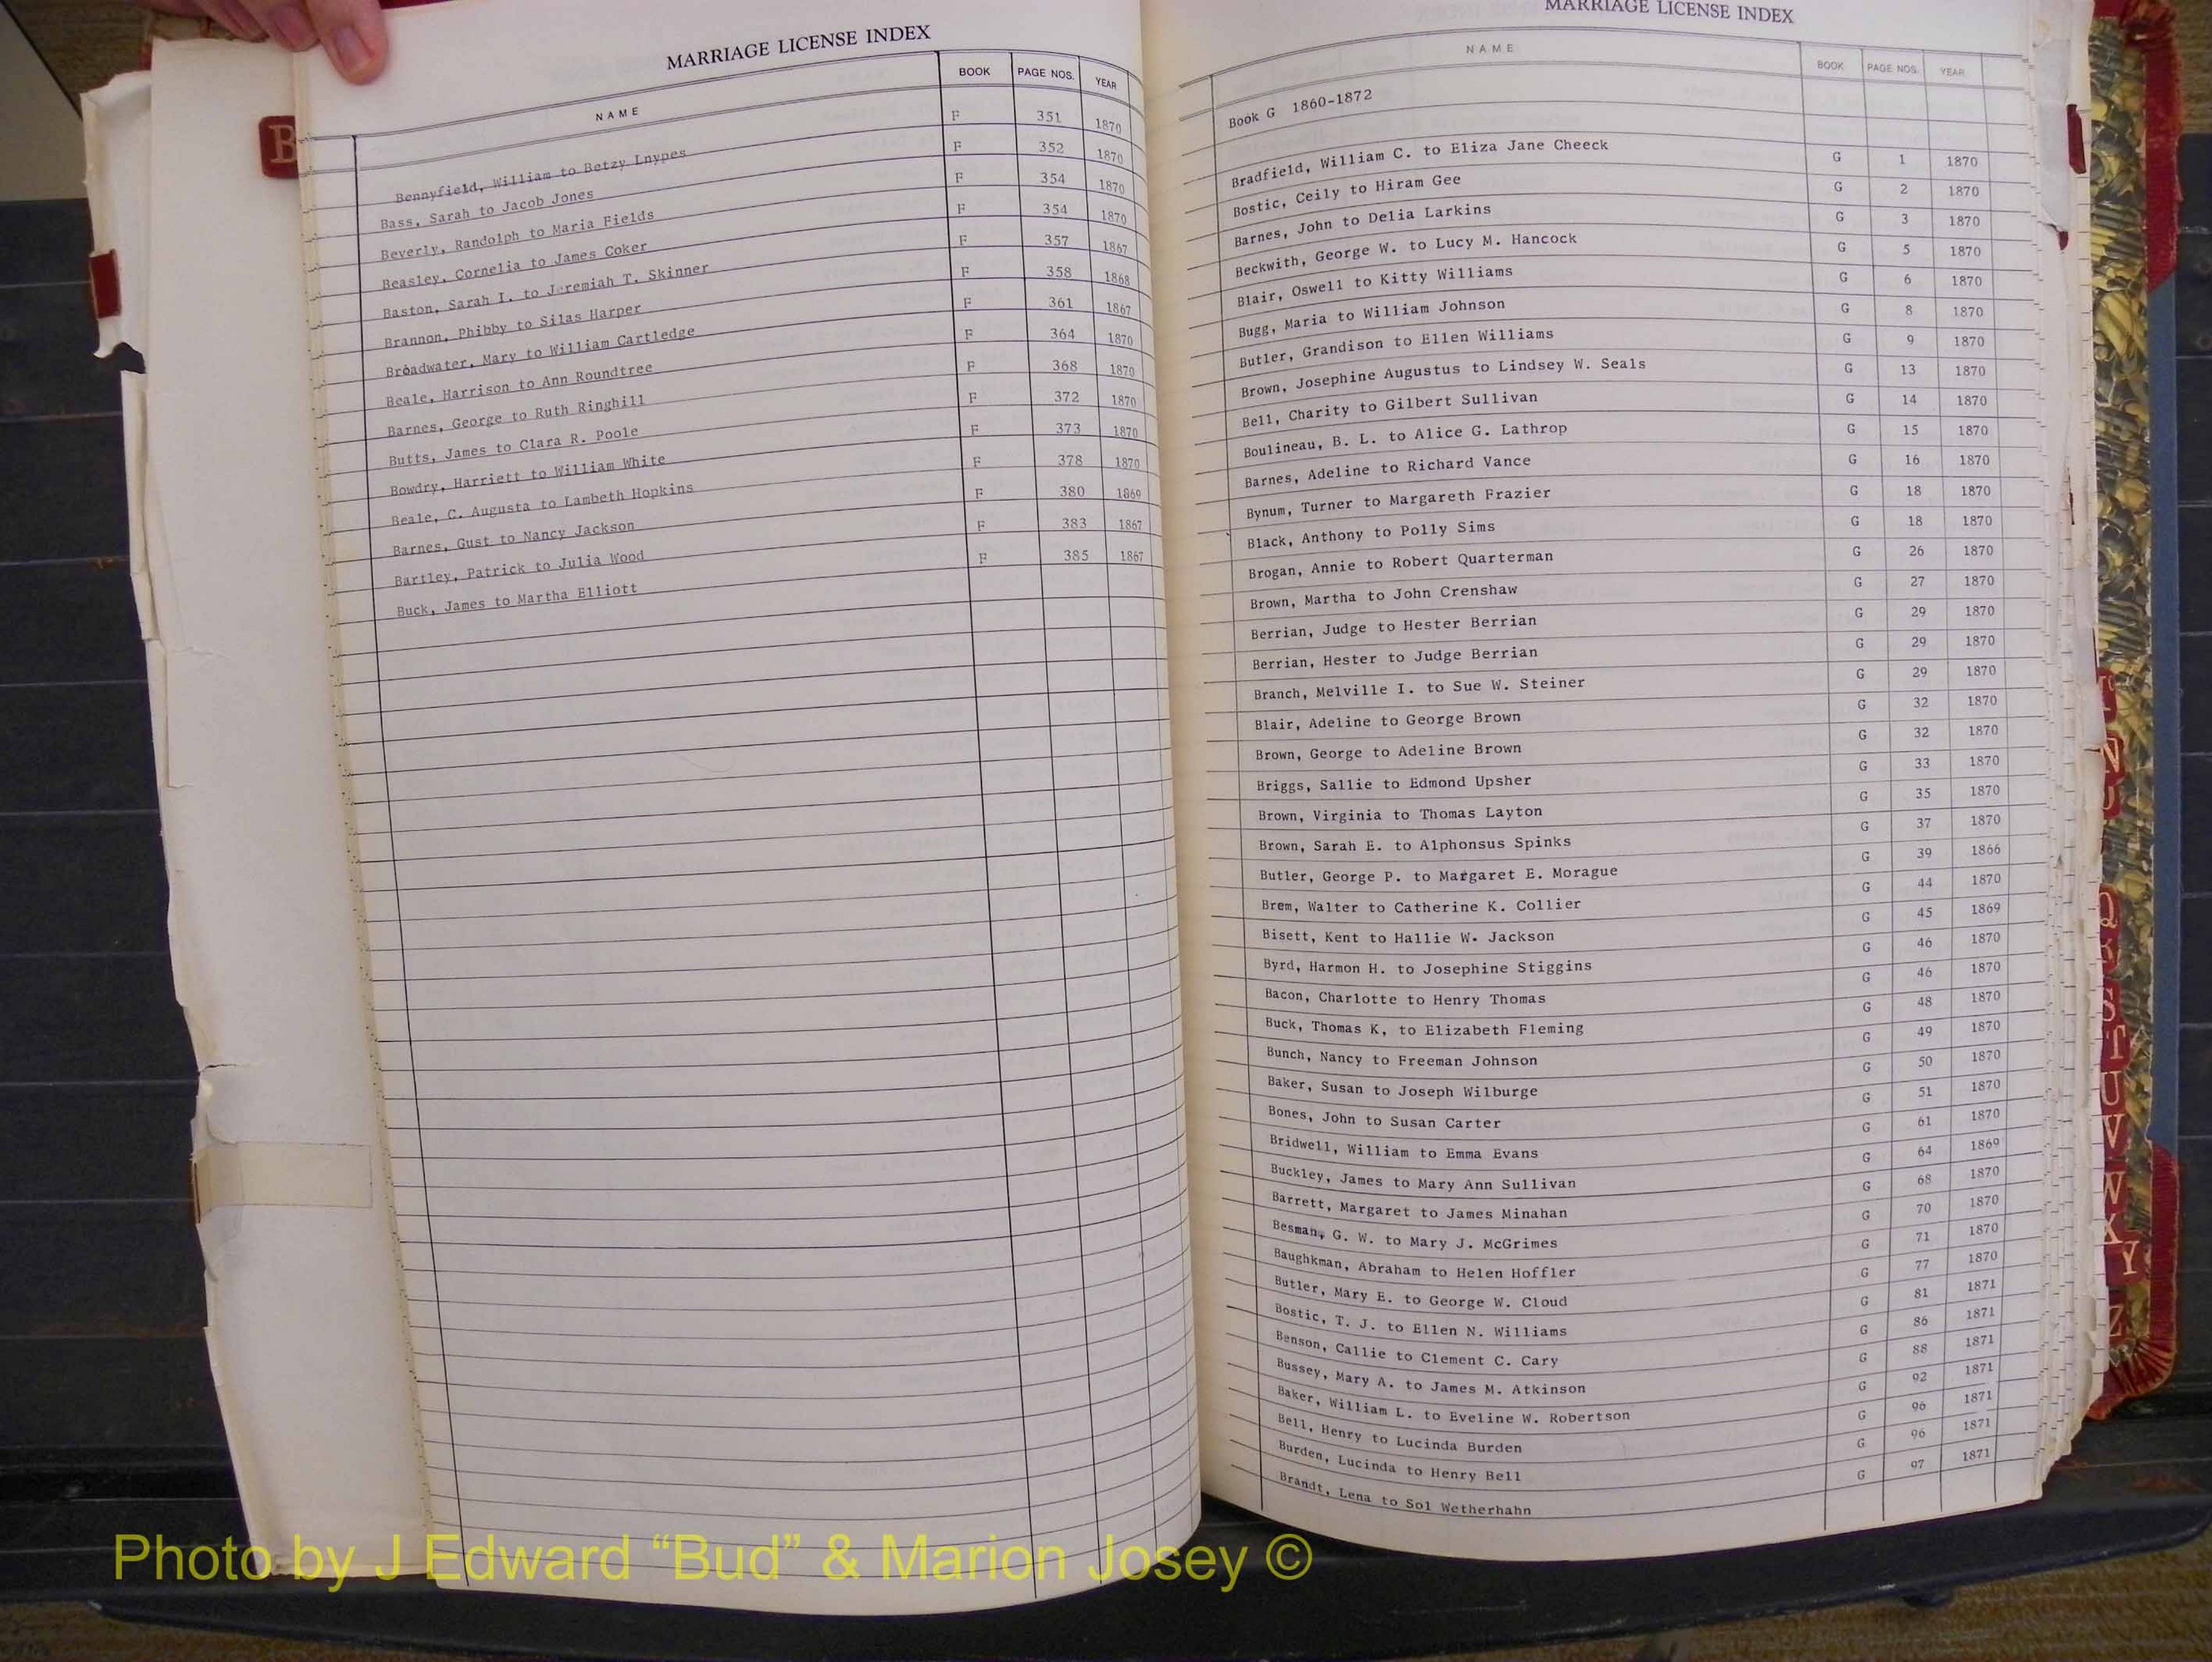 MARRIAGE LICENSE INDEX
NAME BOOK PAGE NOS. YEAR
B
Bennyfield, William to Betzy Lnypes F 351 1870
Bass, Sarah to Jacob Jones F 352 1870
Beverly, Randolph to Maria Fields F 354 1870
Beasley, Cornelia to James Coker F 354 1870
Baston, Sarah I. to Jeremiah T. Skinner F 357 1867
Brannon, Phibby to Silas Harper F 358 1868
Broadwater, Mary to William Cartledge F 361 1867
Beale, Harrison to Ann Roundtree F 364 1870
Barnes, George to Ruth Ringhill F 368 1870
Butts, James to Clara R. Poole F 372 1870
Bowdry, Harriett to William White F 373 1870
Beale, C. Augusta to Lambeth Hopkins F 378 1870
Barnes, Gust to Nancy Jackson F 380 1869
Bartley, Patrick to Julia Wood F 383 1867
Buck, James to Martha Elliott F 385 1867
MARRIAGE LICENSE INDEX
NAME BOOK PAGE NOS. YEAR
Book G 1860-1872
Bradfield, William C. to Eliza Jane Cheeck G 1 1870
Bostic, Ceily to Hiram Gee G 2 1870
Barnes, John to Delia Larkins G 3 1870
Beckwith, George W. to Lucy M. Hancock G 5 1870
Blair, Oswell to Kitty Williams G 6 1870
Bugg, Maria to William Johnson G 8 1870
Butler, Grandison to Ellen Williams G 9 1870
Brown, Josephine Augustus to Lindsey W. Seals G 13 1870
Bell, Charity to Gilbert Sullivan G 14 1870
Boulineau, B. L. to Alice G. Lathrop G 15 1870
Barnes, Adeline to Richard Vance G 16 1870
Bynum, Turner to Margareth Frazier G 18 1870
Black, Anthony to Polly Sims G 18 1870
Brogan, Annie to Robert Quarterman G 26 1870
Brown, Martha to John Crenshaw G 27 1870
Berrian, Judge to Hester Berrian G 29 1870
Berrian, Hester to Judge Berrian G 29 1870
Branch, Melville I. to Sue W. Steiner G 29 1870
Blair, Adeline to George Brown G 32 1870
Brown, George to Adeline Brown G 32 1870
Briggs, Sallie to Edmond Upsher G 33 1870
Brown, Virginia to Thomas Layton G 35 1870
Brown, Sarah E. to Alphonsus Spinks G 37 1870
Butler, George P. to Margaret E. Morague G 39 1866
Brem, Walter to Catherine K. Collier G 44 1870
Bisett, Kent to Hallie W. Jackson G 45 1869
Byrd, Harmon H. to Josephine Stiggins G 46 1870
Bacon, Charlotte to Henry Thomas G 46 1870
Buck, Thomas K, to Elizabeth Fleming G 48 1870
Bunch, Nancy to Freeman Johnson G 49 1870
Baker, Susan to Joseph Wilburge G 50 1870
Bones, John to Susan Carter G 51 1870
Bridwell, William to Emma Evans G 61 1870
Buckley, James to Mary Ann Sullivan G 64 1869
Barrett, Margaret to James Minahan G 68 1870
Besman, G. W. to Mary J. McGrimes G 70 1870
Baughkman, Abraham to Helen Hoffler G 71 1870
Butler, Mary E. to George W. Cloud G 77 1870
Bostic, T. J. to Ellen N. Williams G 81 1871
Benson, Callie to Clement C. Cary G 86 1871
Bussey, Mary A. to James M. Atkinson G 88 1871
Baker, William L. to Eveline W. Robertson G 92 1871
Bell, Henry to Lucinda Burden G 96 1871
Burden, Lucinda to Henry Bell G 96 1871
Brandt, Lena to Sol Wetherhahn G 97 1871
Q
R
S
T
U
V
W
X
Y
Z
Photo by J Edward “Bud” & Marion Josey ©